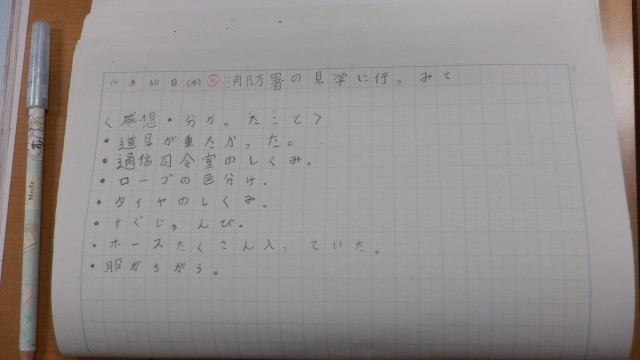 10月30日(水) 消防署の見学に行ってみて
<感想・分かったこと>
・道具が重たかった。
・通信司令室のしくみ。
・ロープの色分け。
・タイヤのしくみ。
・すぐじゅんび。
・ホースたくさん入っていた。
・服がちがう。